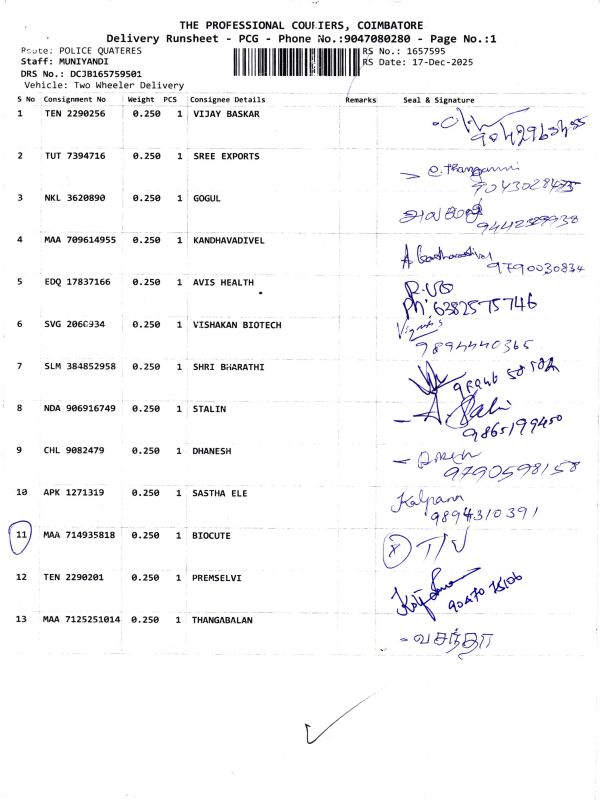 THE PROFESSIONAL COURIERS, COIMBATORE
Delivery Runsheet - PCG - Phone No.:9047080280 - Page No.:1
Route: POLICE QUATERES
RS No.: 1657595
Staff: MUNIYANDI
RS Date: 17-Dec-2025
DRS No.: DCJB165759501
Vehicle: Two Wheeler Delivery
S No Consignment No Weight PCS Consignee Details Remarks Seal & Signature
1 TEN 2290256 0.250 1 VIJAY BASKAR
2 TUT 7394716 0.250 1 SREE EXPORTS
3 NKL 3620890 0.250 1 GOGUL
4 MAA 709614955 0.250 1 KANDHAVADIVEL
9790030834
5 EDQ 17837166 0.250 1 AVIS HEALTH
Ph: 6382575746
6 SVG 2060934 0.250 1 VISHAKAN BIOTECH
9894440365
7 SLM 384852958 0.250 1 SHRI BHARATHI
8 NDA 906916749 0.250 1 STALIN
9865199450
9 CHL 9082479 0.250 1 DHANESH
9790598158
10 APK 1271319 0.250 1 SASTHA ELE Kalpana
9894310391
11 MAA 714935818 0.250 1 BIOCUTE
12 TEN 2290201 0.250 1 PREMSELVI
13 MAA 7125251014 0.250 1 THANGABALAN
- வசந்தா